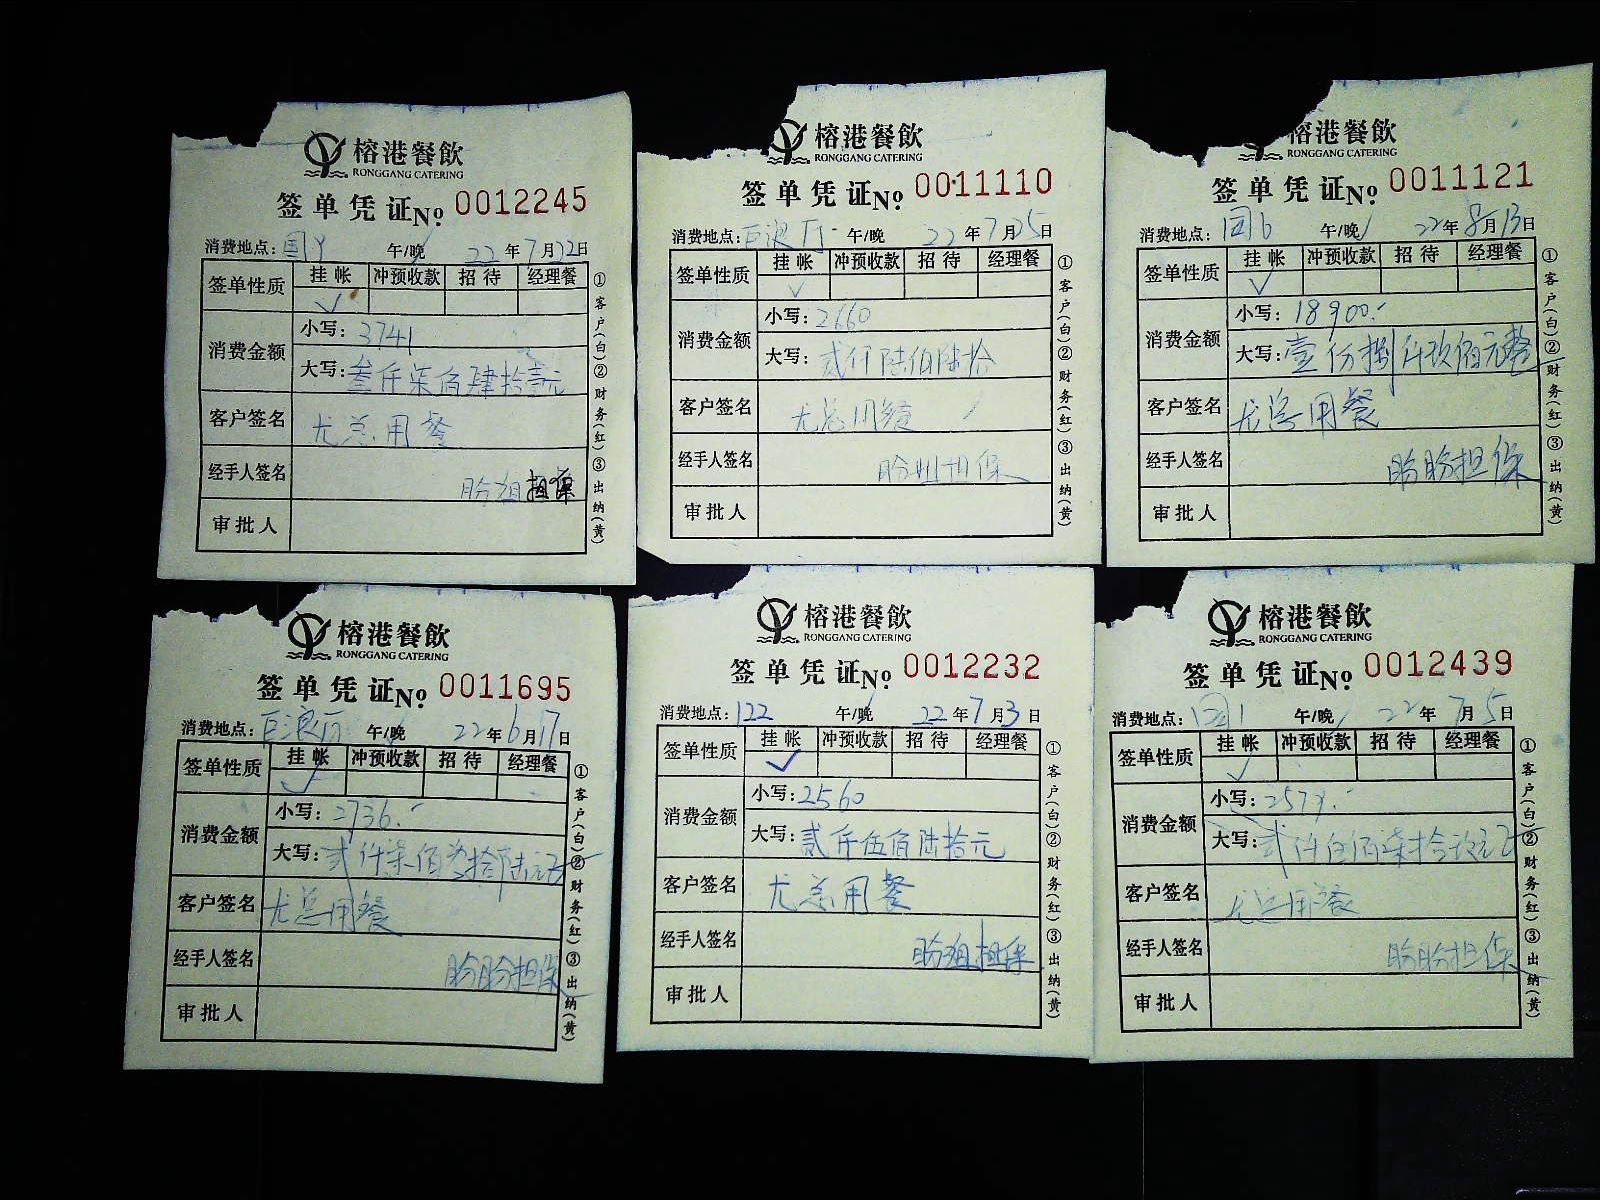 榕港餐飲
RONGGANG CATERING
签单凭证 No. 0012245
消费地点: 午/晚 22年7月22日
签单性质 挂帐 冲预收款 招待 经理餐
✓
消费金额 小写: 3741
大写: 叁仟柒佰肆拾壹元
客户签名 尤总用餐
经手人签名 盼姐担保
审批人
①客户(白)②财务(红)③出纳(黄)
榕港餐飲
RONGGANG CATERING
签单凭证 No. 0011110
消费地点: 巨浪厅 午/晚 22年7月25日
签单性质 挂帐 冲预收款 招待 经理餐
✓
消费金额 小写: 2660
大写: 贰仟陆佰陆拾
客户签名 尤总用餐
经手人签名 盼姐担保
审批人
①客户(白)②财务(红)③出纳(黄)
榕港餐飲
RONGGANG CATERING
签单凭证 No. 0011121
消费地点: 午/晚 22年8月13日
签单性质 挂帐 冲预收款 招待 经理餐
✓
消费金额 小写: 18900.-
大写: 壹万捌仟玖佰元整
客户签名 尤总用餐
经手人签名 盼盼担保
审批人
①客户(白)②财务(红)③出纳(黄)
榕港餐飲
RONGGANG CATERING
签单凭证 No. 0011695
消费地点: 巨浪厅 午/晚 22年6月17日
签单性质 挂帐 冲预收款 招待 经理餐
✓
消费金额 小写: 2736.-
大写: 贰仟柒佰叁拾陆元正
客户签名 尤总用餐
经手人签名 盼盼担保
审批人
①客户(白)②财务(红)③出纳(黄)
榕港餐飲
RONGGANG CATERING
签单凭证 No. 0012232
消费地点: 122 午/晚 22年7月3日
签单性质 挂帐 冲预收款 招待 经理餐
✓
消费金额 小写: 2560
大写: 贰仟伍佰陆拾元
客户签名 尤总用餐
经手人签名 盼姐担保
审批人
①客户(白)②财务(红)③出纳(黄)
榕港餐飲
RONGGANG CATERING
签单凭证 No. 0012439
消费地点: 午/晚 22年7月5日
签单性质 挂帐 冲预收款 招待 经理餐
✓
消费金额 小写: 2579.-
大写: 贰仟伍佰柒拾玖元正
客户签名 尤总用餐
经手人签名 盼盼担保
审批人
①客户(白)②财务(红)③出纳(黄)